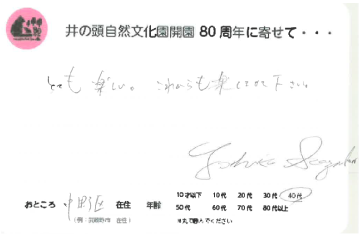 井の頭自然文化園開園 80 周年に寄せて・・・
とても 楽しい。これからも 楽しませて下さい
おところ 中野区 在住 年齢 10才以下 10代 20代 30代 40代
(例：武蔵野市 在住) 50代 60代 70代 80代以上
※丸で囲んでください